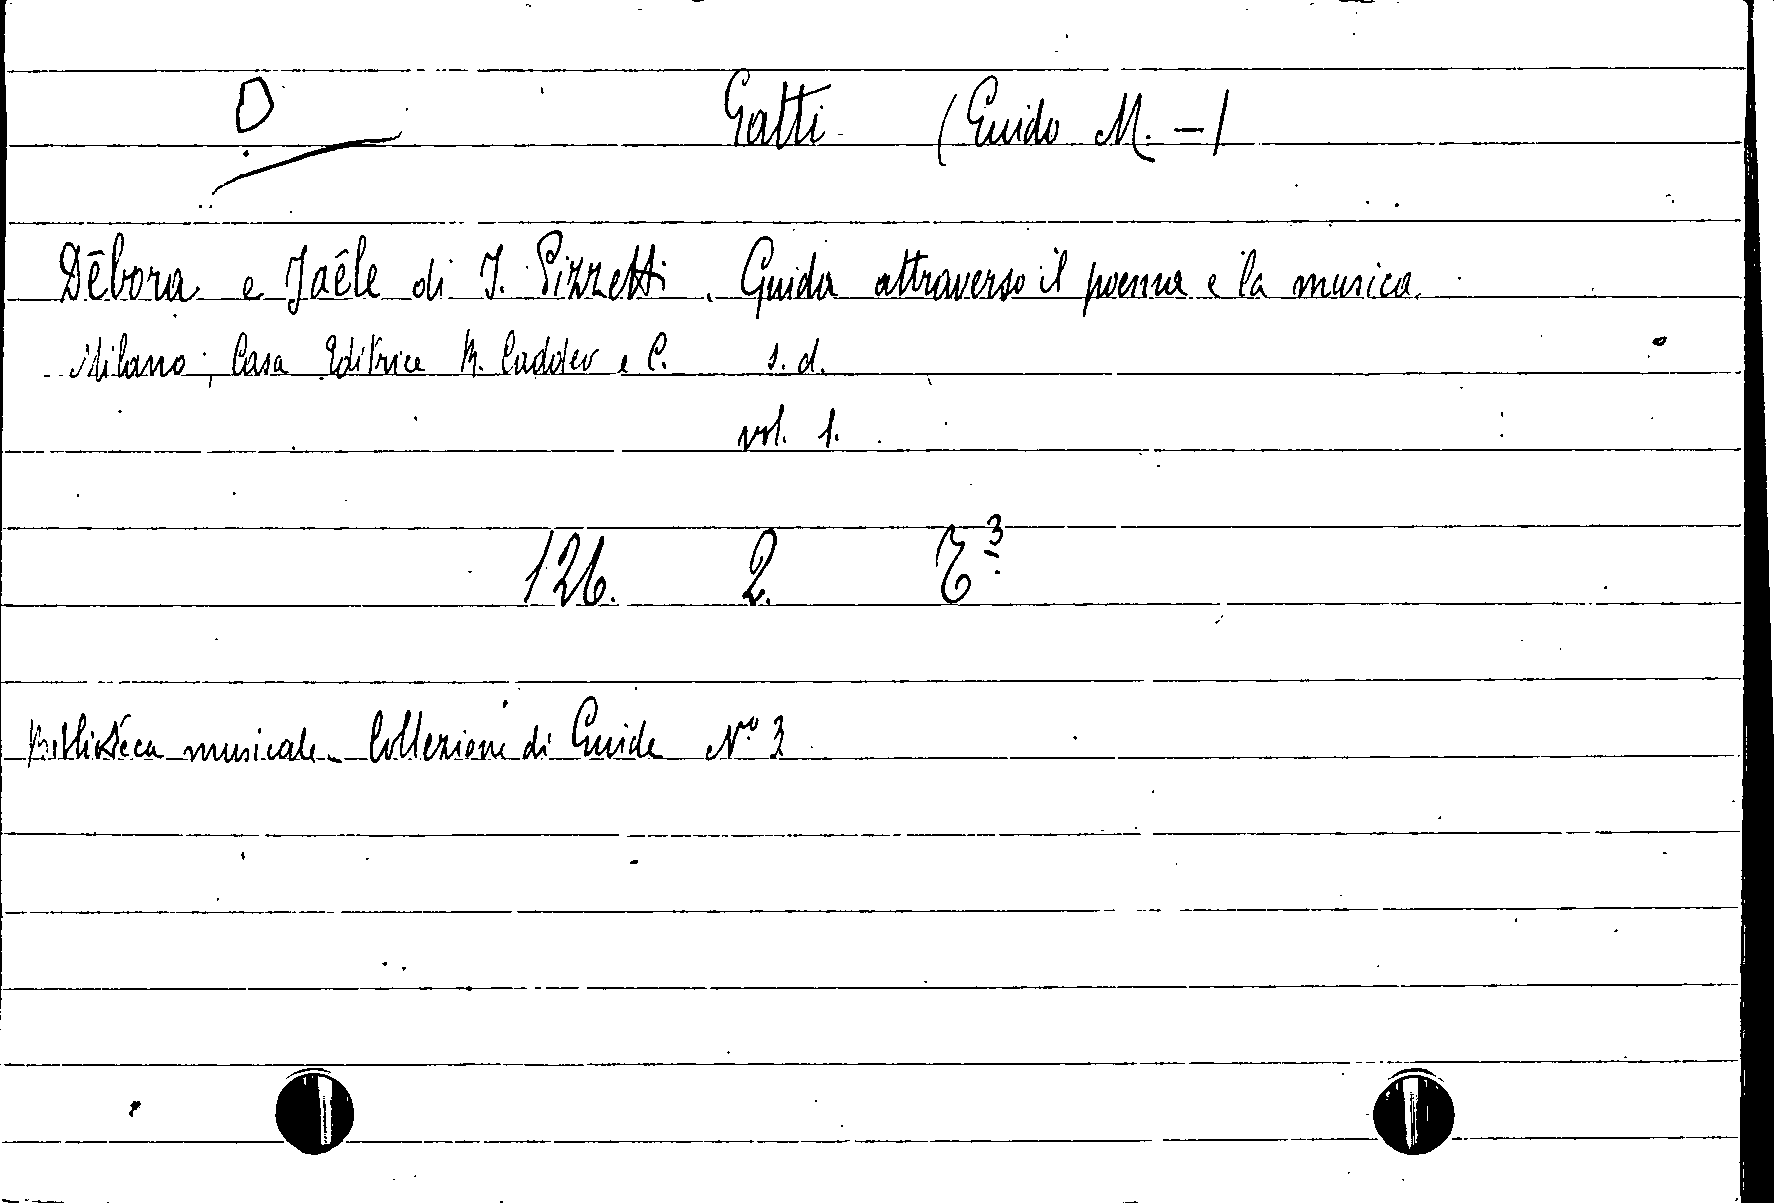 D Gatti (Guido M. -)
Dēbora e Jaéle di I. Pizzetti. Guida attraverso il poema e la musica.
Milano, Casa Editrice B. Caddeo e C. s. d.
vol. 1.
126. 2. 3
Biblioteca musicale - Collezione di Guide Nº 3